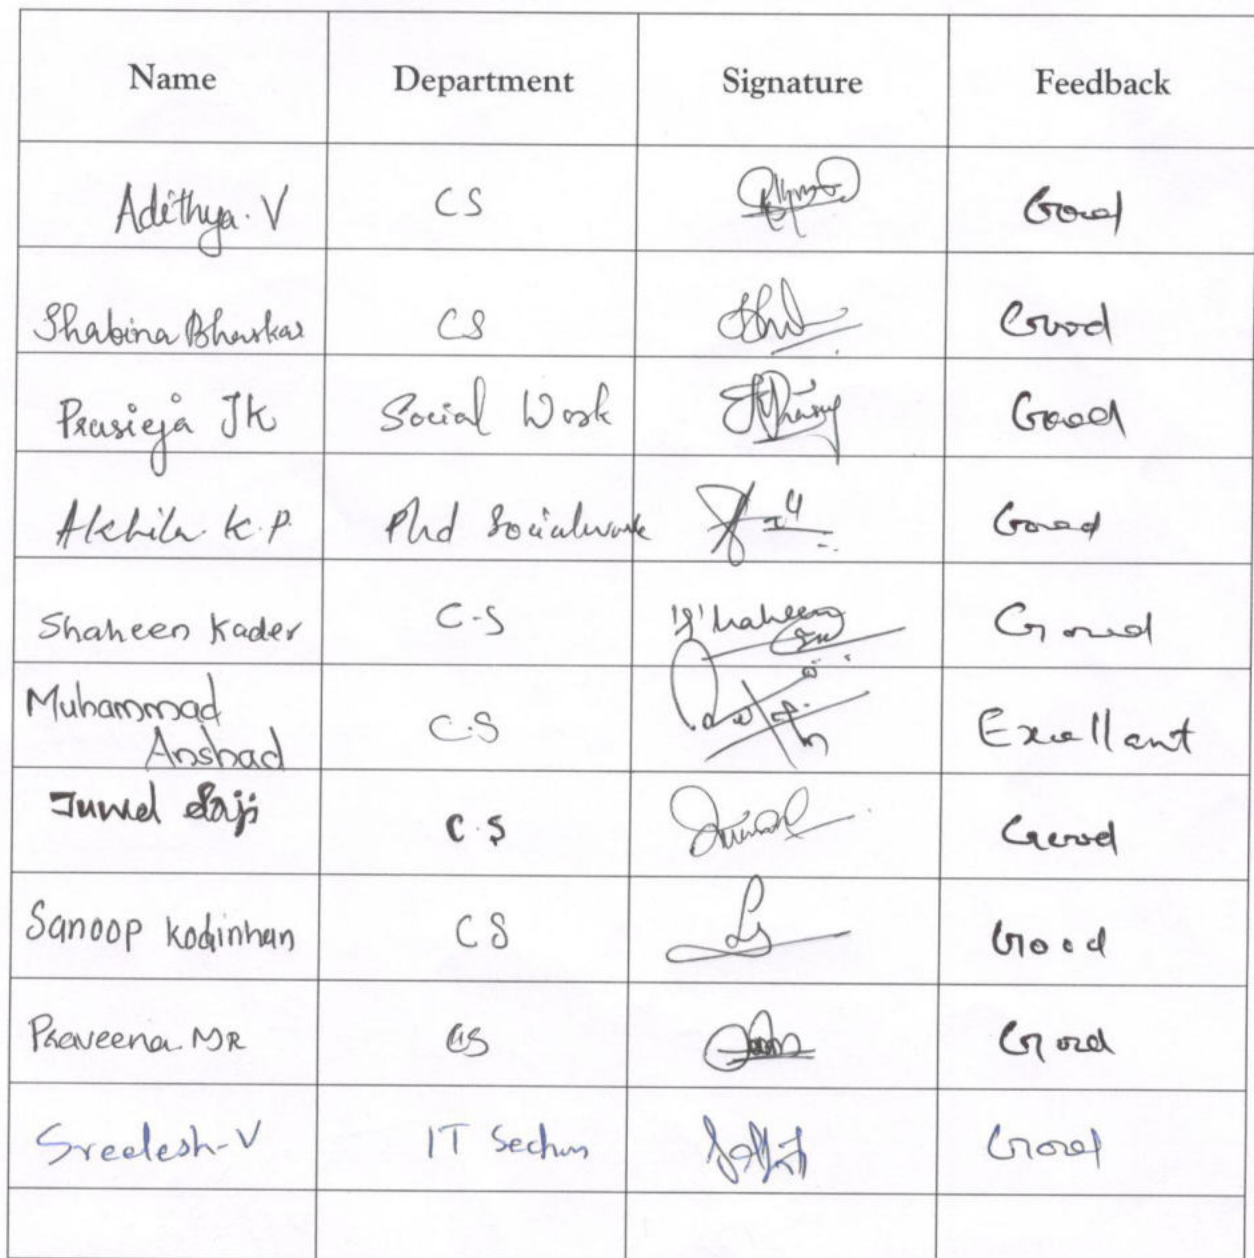 Name Department Signature Feedback
Adithya. V CS Good
Shabina Bhaskar CS Good
Prasieja JK Social Work Good
Akhila. K.P. Phd Socialwork Good
Shaheen Kader C-S Shaheen Good
Muhammad
Anshad C.S Excellant
Juwel Saji C.S Good
Sanoop Kodinhan CS Good
Praveena MR CS Good
Sreelesh-V IT Section Good